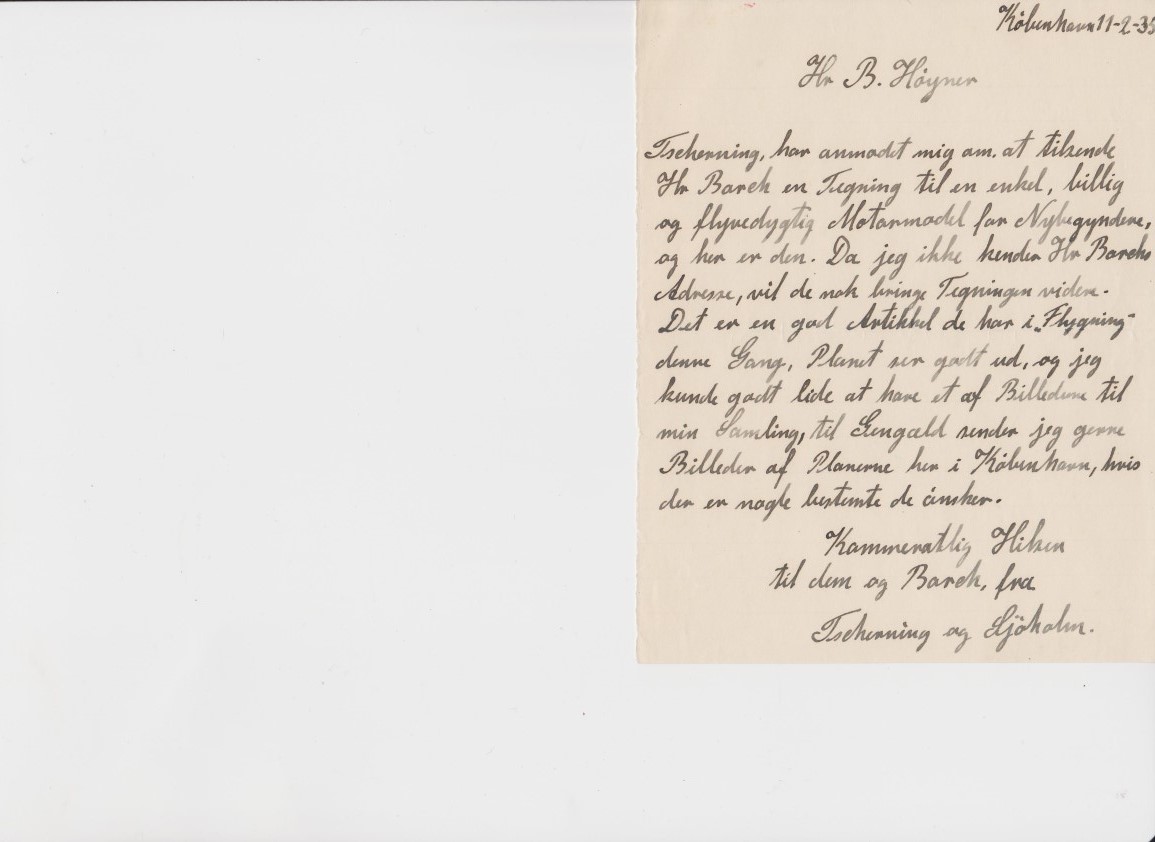 København 11-2-35
Hr B. Høyner
Tscherning, har anmodet mig om, at tilsende
Hr Barck en Tegning til en enkel, billig
og flyvedygtig Motormodel for Nybegyndere,
og her er den. Da jeg ikke kender Hr Barcks
Adresse, vil de nok bringe Tegningen videre.
Det er en god Artikkel de har i „Flygning"
denne Gang, Planet ser godt ud, og jeg
kunde godt lide at have et af Billederne til
min Samling, til Gengæld sender jeg gerne
Billeder af Planerne her i København, hvis
der er nogle bestemte de ønsker.
Kammeratlig Hilsen
til dem og Barck, fra
Tscherning og Sjöholm.